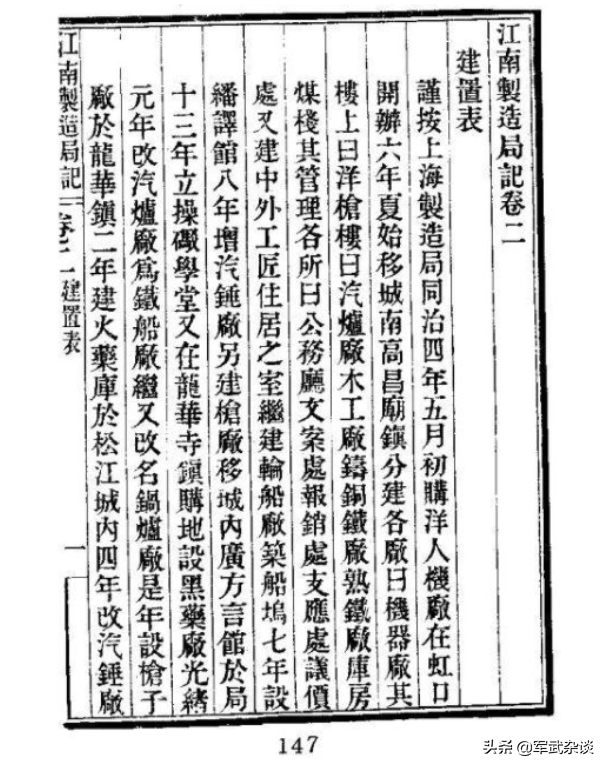 江南製造局記卷二
建置表
謹按上海製造局同治四年五月初購洋人機廠在虹口
開辦六年夏始移城南高昌廟鎮分建各廠曰機器廠其
樓上曰洋槍樓曰汽爐廠木工廠鑄銅鐵廠熟鐵廠庫房
煤棧其管理各所曰公務廳文案處報銷處支應處議價
處又建中外工匠住居之室繼建輪船廠築船塢七年設
繙譯館八年增汽錘廠另建槍廠移城內廣方言館於局
十三年立操礮學堂又在龍華寺鎮購地設黑藥廠光緒
元年改汽爐廠爲鐵船廠繼又改名鍋爐廠是年設槍子
廠於龍華鎮二年建火藥庫於松江城內四年改汽錘廠
江南製造局記 卷二 建置表
一
147
头条 @军武杂谈